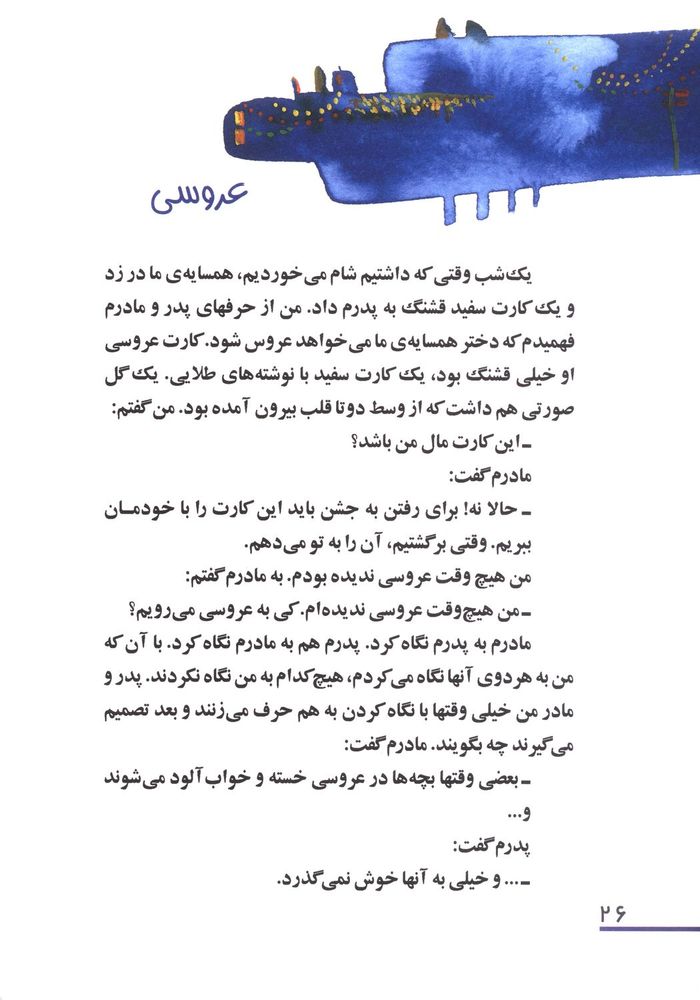 عروسی
یک‌شب وقتی که داشتیم شام می‌خوردیم، همسایه‌ی ما در زد
و یک کارت سفید قشنگ به پدرم داد. من از حرفهای پدر و مادرم
فهمیدم که دختر همسایه‌ی ما می‌خواهد عروس شود. کارت عروسی
او خیلی قشنگ بود، یک کارت سفید با نوشته‌های طلایی. یک گل
صورتی هم داشت که از وسط دوتا قلب بیرون آمده بود. من گفتم:
ـ این کارت مال من باشد؟
مادرم گفت:
ـ حالا نه! برای رفتن به جشن باید این کارت را با خودمـان
ببریم. وقتی برگشتیم، آن را به تو می‌دهم.
من هیچ وقت عروسی ندیده بودم. به مادرم گفتم:
ـ من هیچ‌وقت عروسی ندیده‌ام. کی به عروسی می‌رویم؟
مادرم به پدرم نگاه کرد. پدرم هم به مادرم نگاه کرد. با آن که
من به هردوی آنها نگاه می‌کردم، هیچ‌کدام به من نگاه نکردند. پدر و
مادر من خیلی وقتها با نگاه کردن به هم حرف می‌زنند و بعد تصمیم
می‌گیرند چه بگویند. مادرم گفت:
ـ بعضی وقتها بچه‌ها در عروسی خسته و خواب‌آلود می‌شوند
و...
پدرم گفت:
ـ ... و خیلی به آنها خوش نمی‌گذرد.
۲۶